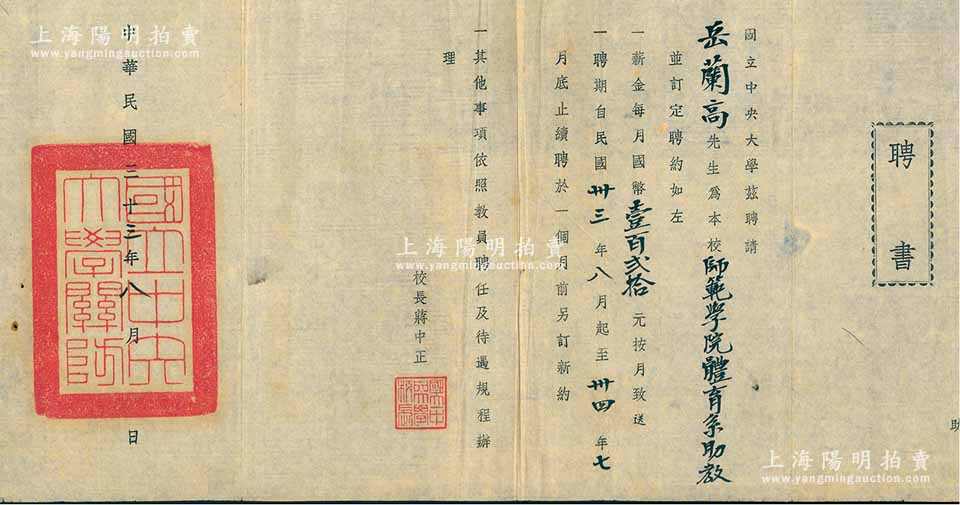 聘書
國立中央大學茲聘請
岳蘭高先生爲本校師範學院體育系助教
並訂定聘約如左
一薪金每月國幣壹百弍拾元按月致送
一聘期自民國卅三年八月起至卅四年七
月底止續聘於一個月前另訂新約
一其他事項依照教員聘任及待遇規程辦
理
校長蔣中正
中華民國三十三年八月日
國立中央
大學關防
助
上海陽明拍賣
www.yangmingauction.com
上海陽明拍賣
www.yangmingauction.com
上海陽明拍賣
www.yangmingauction.com
上海陽明拍賣
www.yangmingauction.com